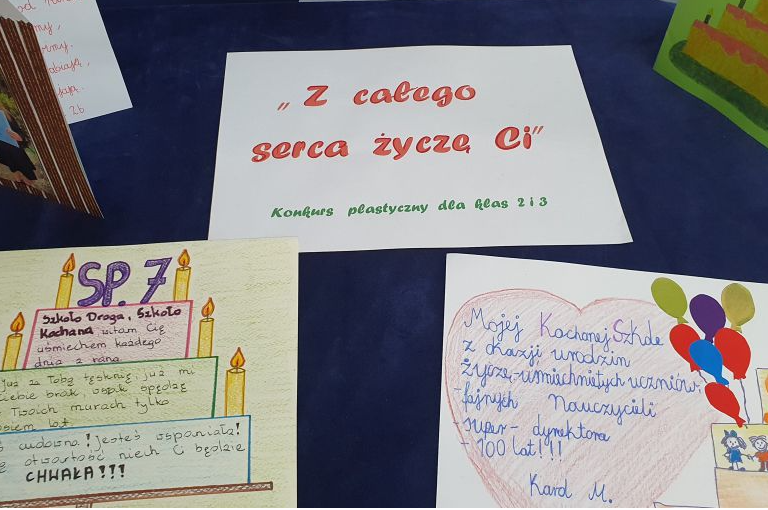 my,
rmy.
2b
„Z całego
serca życzę Ci”
Konkurs plastyczny dla klas 2 i 3
SP. 7
Szkoło Droga, Szkoło
Kochana witam Cię
uśmiechem każdego
dnia z rana.
Już za Tobą tęsknię, już mi
Ciebie brak, ośpik spędzę
Twoich murach tylko
osiem lat.
ś cudowna! jesteś wspaniała!
otwartość niech Ci będzie
CHWAŁA!!!
Mojej Kochanej Szkole
z okazji urodzin
życzę-uśmiechniętych uczniów,
-fajnych Nauczycieli
-super- dyrektora
- 100 lat!!!
Karol M.